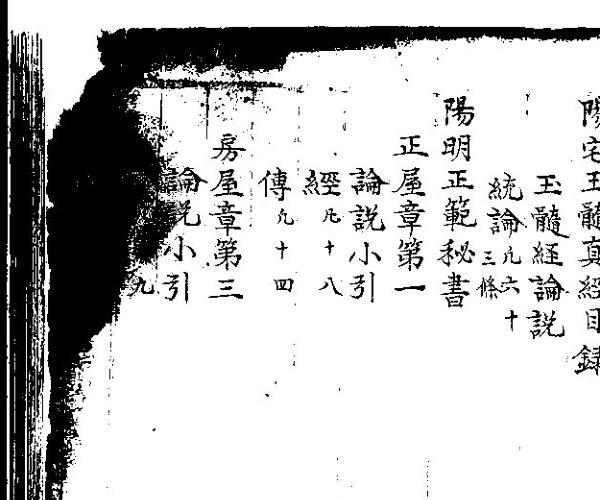 陽宅玉髓真經目錄
玉髓經論説
統論凡六十三條
陽明正範秘書
正屋章第一
論説小引
經凡十八
傳凡十四
房屋章第三
論説小引
九